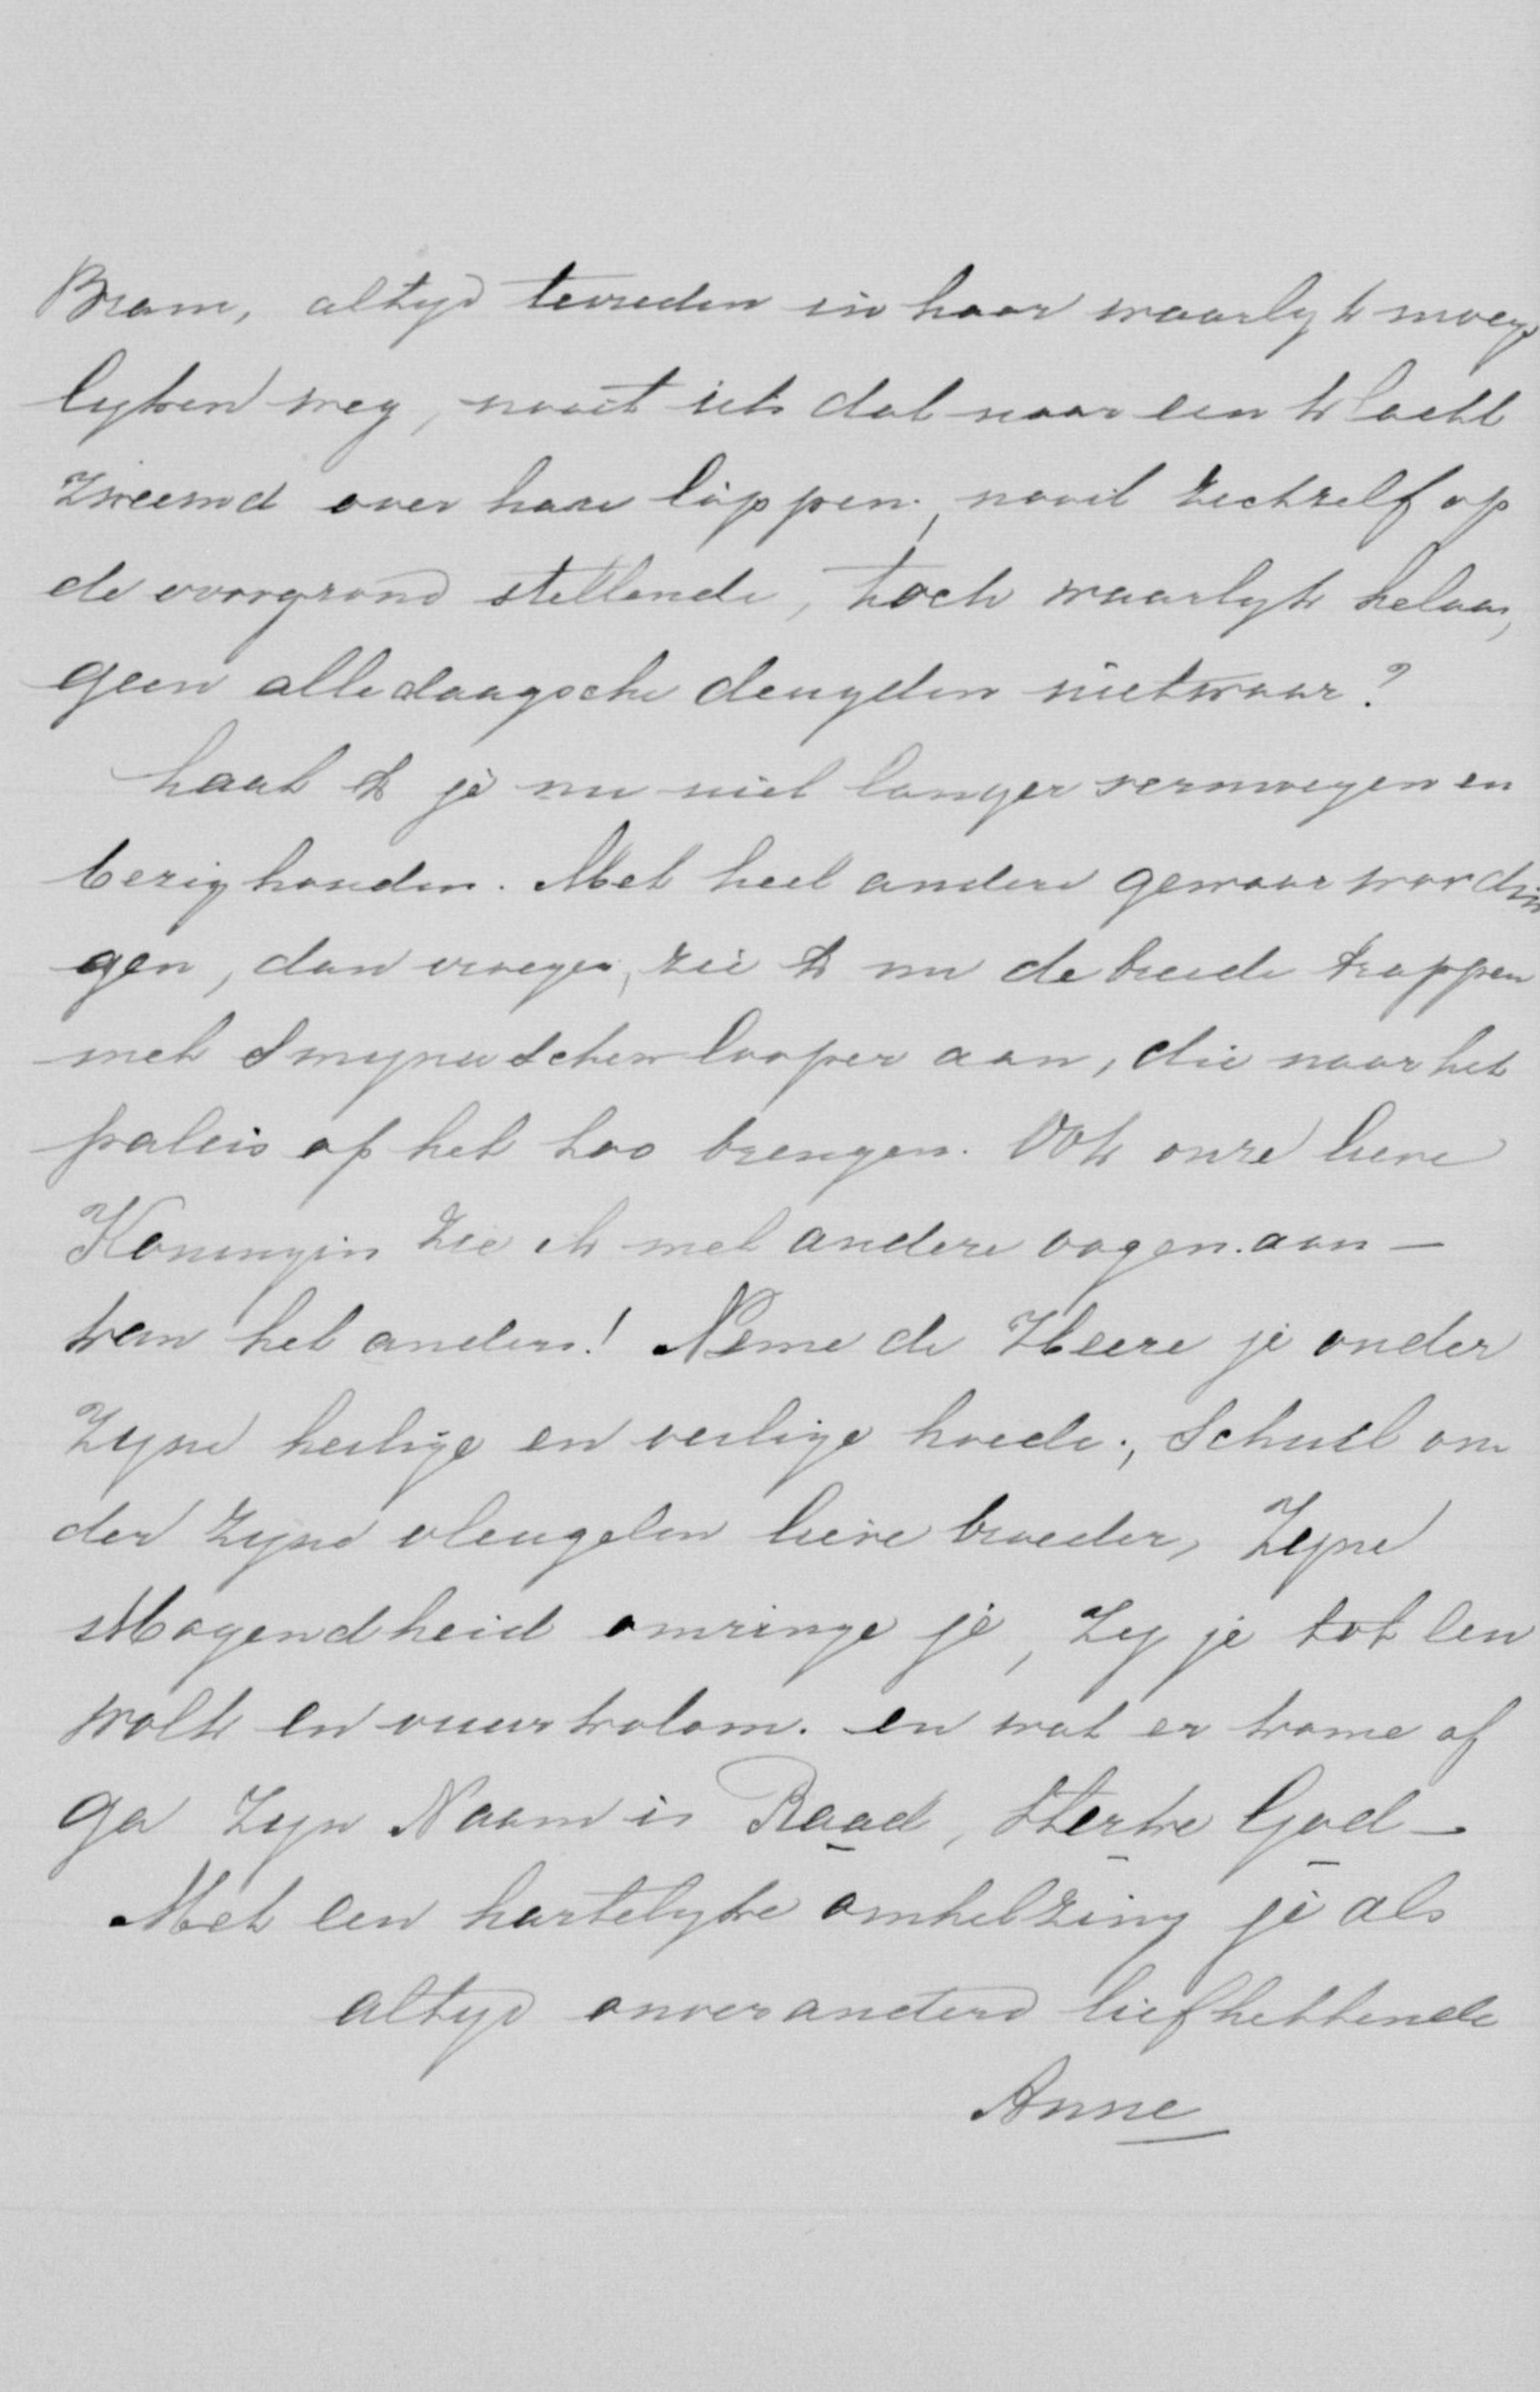 Bram, altyd tevreden in haar waarlyk moey-
lyken weg, nooit iets dat naar een klacht
zweemd over hare lippen, nooit zichzelf op
de voorgrond stellende, toch waarlyk helaas,
geen alledaagsche deugden nietwaar?
Laat ik je nu niet langer vermoeyen en
bezig houden. Met heel andere gewaarwordin
gen, dan vroeger, zie ik nu de breede trappen
met Smyrnaschen looper aan, die naar het
paleis op het Loo brengen. Ook onze lieve
Koningin zie ik met andere oogen aan –
kan het anders! Neme de Heere je onder
Zyne heilige en veilige hoede, Schuil on
der Zyne vleugelen lieve broeder, Zyne
Mogendheid omringe je, Zy je tot een
wolk en vuurkolom. en wat er kome of
ga Zyn Naam is Raad, Sterke God –
Met een hartelyke omhelzing je als
altyd onveranderd liefhebbende
Anne